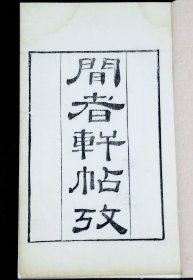 閒者軒帖攷